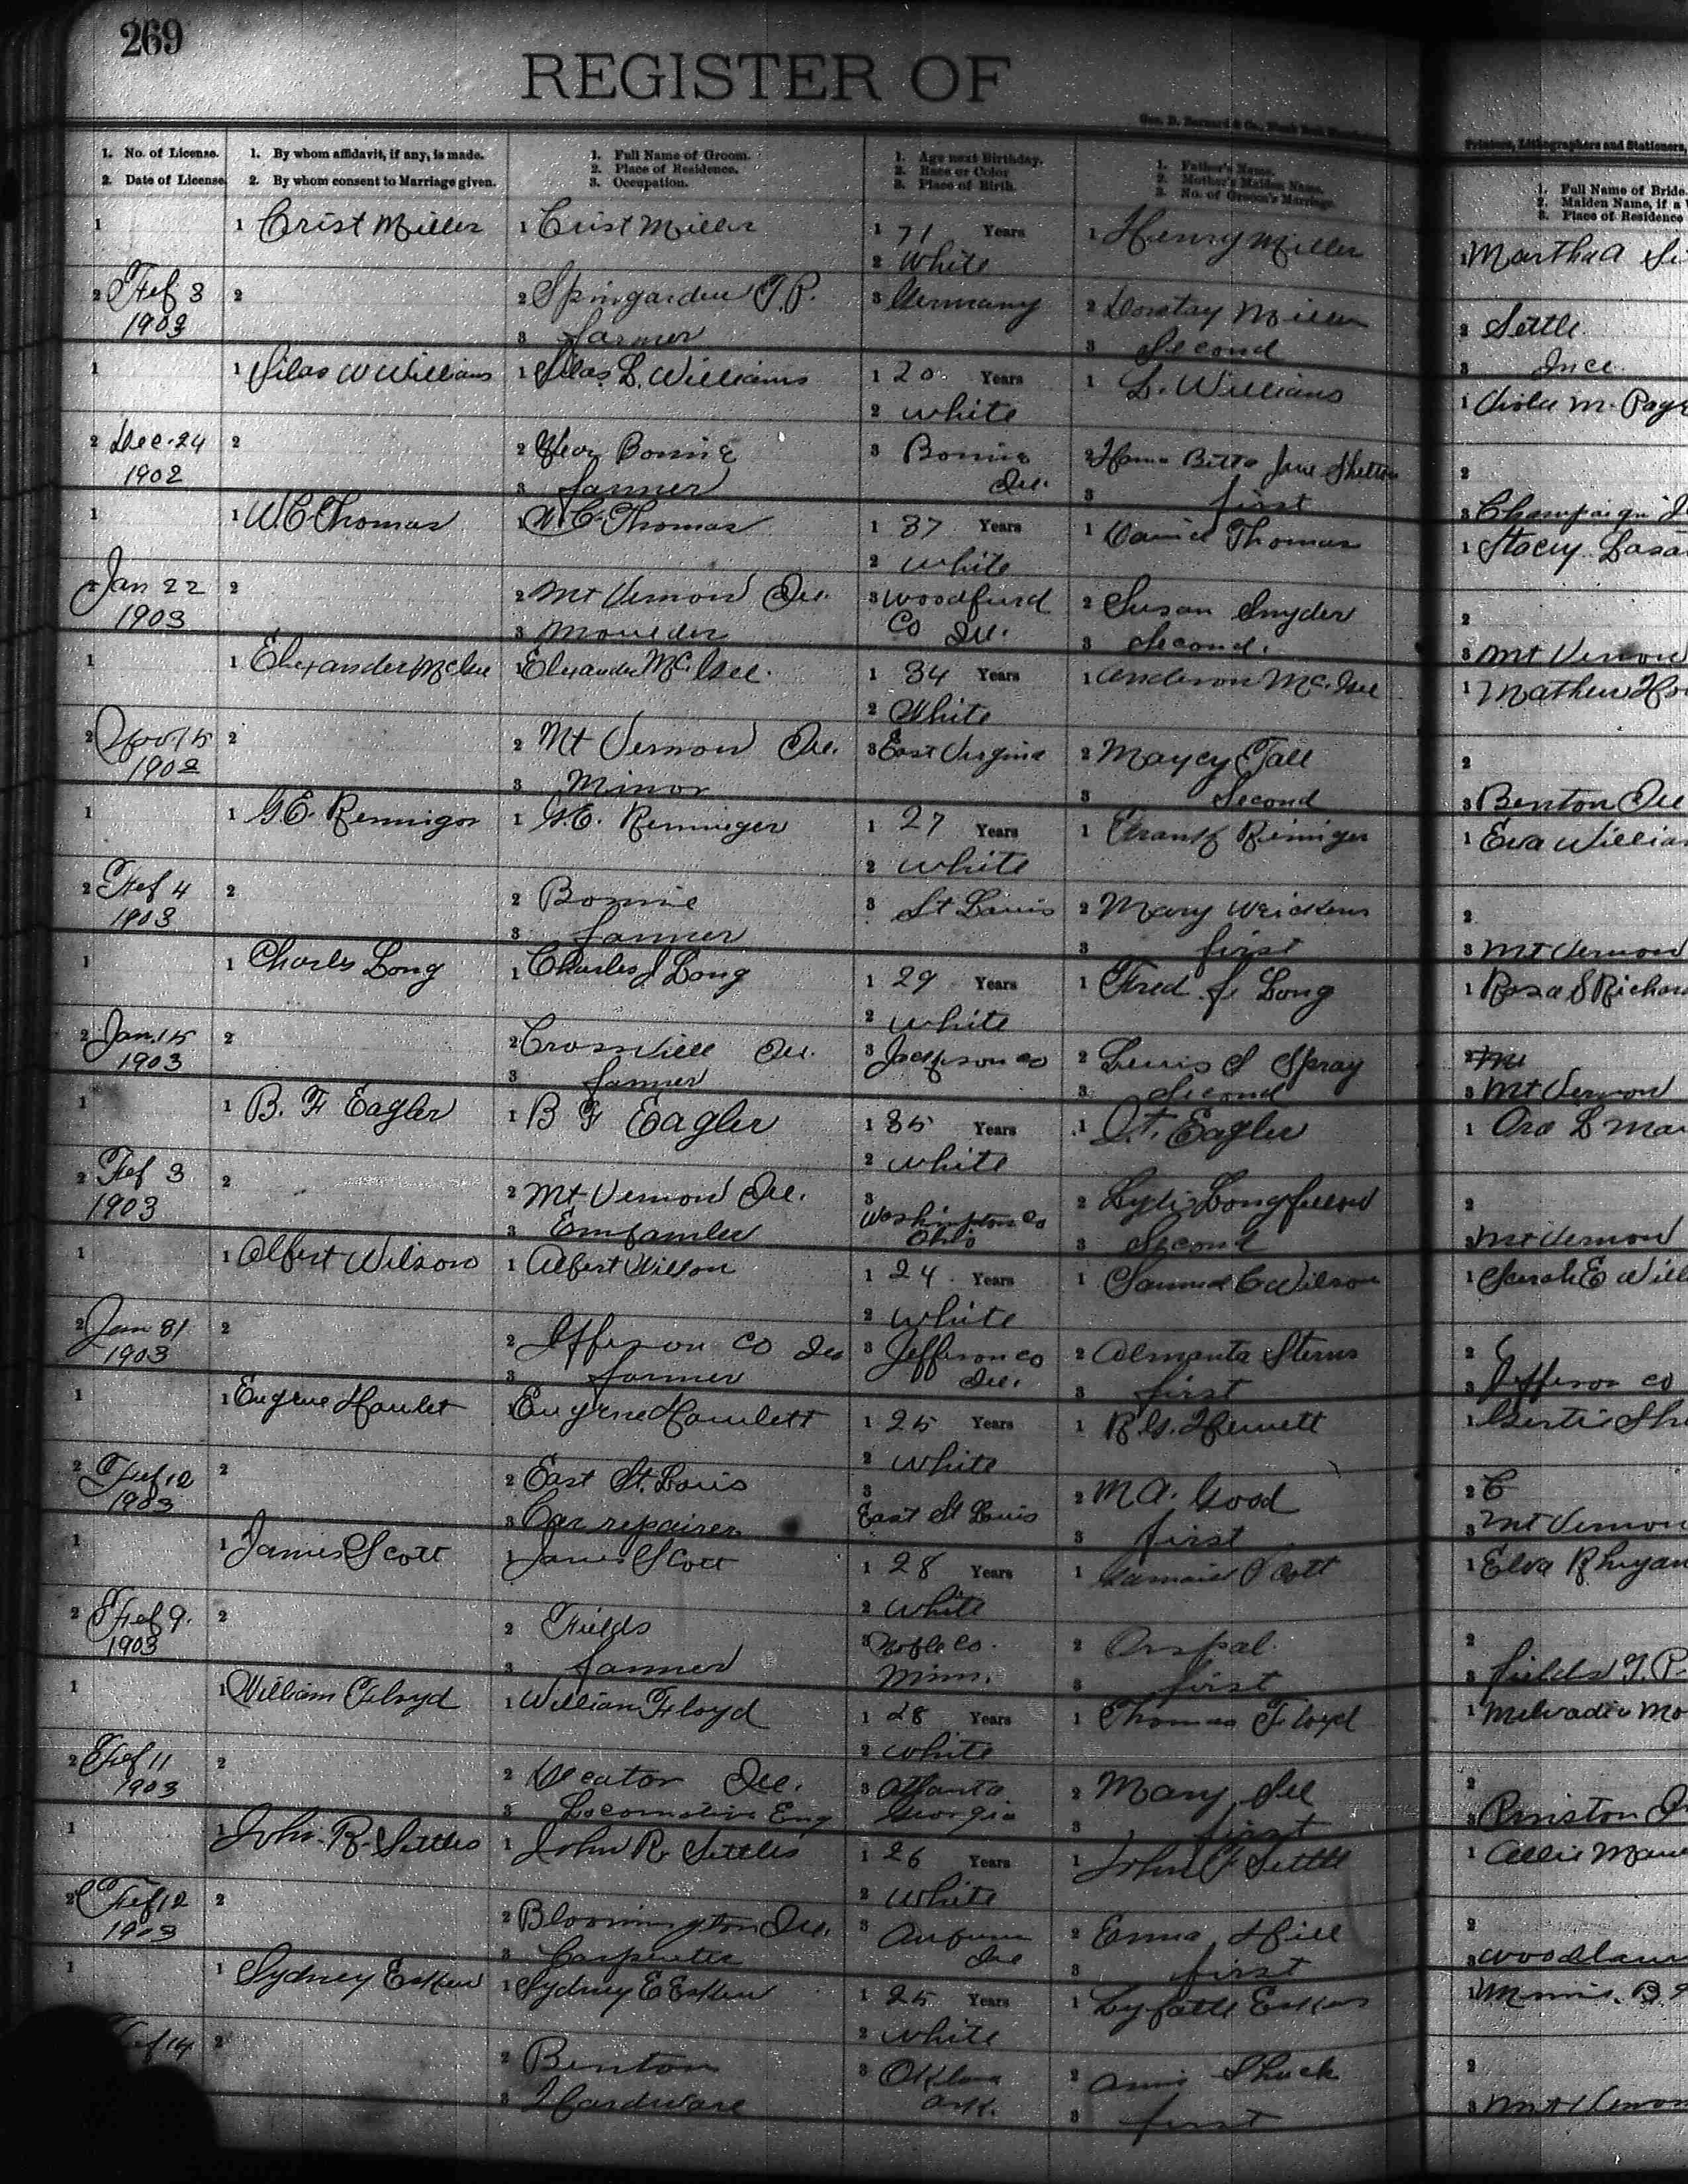 269
REGISTER OF
Geo. D. Barnard & Co.
Printers, Lithographers and Stationers,
1. No. of License.
2. Date of License.
1. By whom affidavit, if any, is made.
2. By whom consent to Marriage given.
1. Full Name of Groom.
2. Place of Residence.
3. Occupation.
1. Age next Birthday.
2. Race or Color
3. Place of Birth.
1. Father's Name.
2. Mother's Maiden Name.
3. No. of Groom's Marriage.
1. Full Name of Bride.
2. Maiden Name, if a
3. Place of Residence
1
2 Feb 3
1903
1 Crist Miller
2
1 Crist Miller
2 Springarden T.P.
3 farmer
1 71 Years
2 White
3 Germany
1 Henry Miller
2 Miller
3 Second
1 Martha A
2 Settle
3 Ince
1
2 Dec. 24
1902
1 Silas W Williams
2
1 Silas L. Williams
2 Near Bonnie
3 farmer
1 20 Years
2 White
3 Bonnie
Ill.
1 L. Williams
2 Jane Shelton
3 first
1 Viola M. Page
2
3 Champaign
1
2 Jan 22
1903
1 W C Thomas
2
1 W C Thomas
2 Mt Vernon Ill.
3 Moulder
1 37 Years
2 White
3 Woodfurd
Co Ill.
1 Daniel Thomas
2 Susan Snyder
3 Second.
1 Stacey
2
3 Mt Vernon
1
2 Nov 15
1902
1 Elexander McGee
2
1 Elexander McGee.
2 Mt Vernon Ill.
3 Minor
1 34 Years
2 White
3 East Virginia
1 Anderson McGee
2 Maycy Tall
3 Second
1 Mathew
2
3 Benton Ill
1
2 Feb 4
1903
1 G.E. Rennigor
2
1 G.E. Renniger
2 Bonnie
3 farmer
1 27 Years
2 White
3 St Louis
1 Frank Rinniger
2 Mary
3 first
1 Eva Willia
2
3 Mt Vernon
1
2 Jan. 15
1903
1 Charles Long
2
1 Charles J Long
2 Crossville Ill.
3 farmer
1 29 Years
2 White
3 Jackson Co
1 Fred Long
2 S Spray
3 Second
1 Rosa S Richar
2
3 Mt Vernon
1
2 Feb 3
1903
1 B. F Eagler
2
1 B F Eagler
2 Mt Vernon Ill.
3
1 35 Years
2 White
3 Washington Co
Ohio
1 Eagler
2 Lydia Longfellow
3 Second
1 Ora L Mar
2
3 Mt Vernon
1
2 Jan 31
1903
1 Albert Wilson
2
1 Albert Wilson
2 Jefferson Co Ill
3 farmer
1 24 Years
2 White
3 Jefferson Co
Ill.
1 Samuel C Wilson
2 Almanta Sterns
3 first
1 Sarah E Will
2
3 Jefferson Co
1
2 Feb 12
1903
1 Eugene Hamlet
2
1 Eugene Hamlett
2 East St. Louis
3 Car repairer
1 25 Years
2 White
3
East St Louis
1 R.G. Hewett
2 M A. Good
3 first
1 Gertie Sh
2
3 Mt Vernon
1
2 Feb 9.
1903
1 James Scott
2
1 James Scott
2 Fields
3 farmer
1 28 Years
2 White
3 Noble Co.
Minn.
1 Scott
2
3 first
1 Elva
2
3 fields T.P.
1
2 Feb 11
1903
1 William Floyd
2
1 William Floyd
2 Decator Ill.
3 Locomotive Eng
1 28 Years
2 White
3 Atlanta
Georgia
1 Thomas Floyd
2 Mary
3 first
1 Mo
2
3
1
2 Feb 12
1903
1 John R. Settles
2
1 John R. Settles
2 Bloomington Ill.
3 Carpenter
1 26 Years
2 White
3 Auburn
Ill
1 John F Settle
2 Emma Hill
3 first
1 Allie
2
3 Woodlawn
1
2 Feb 14
1 Sydney Esken
2
1 Sydney E Esken
2 Benton
3 Hardware
1 25 Years
2 White
3
Ark.
1
2 Shuck
3 first
1 B
2
3 Mt Vernon